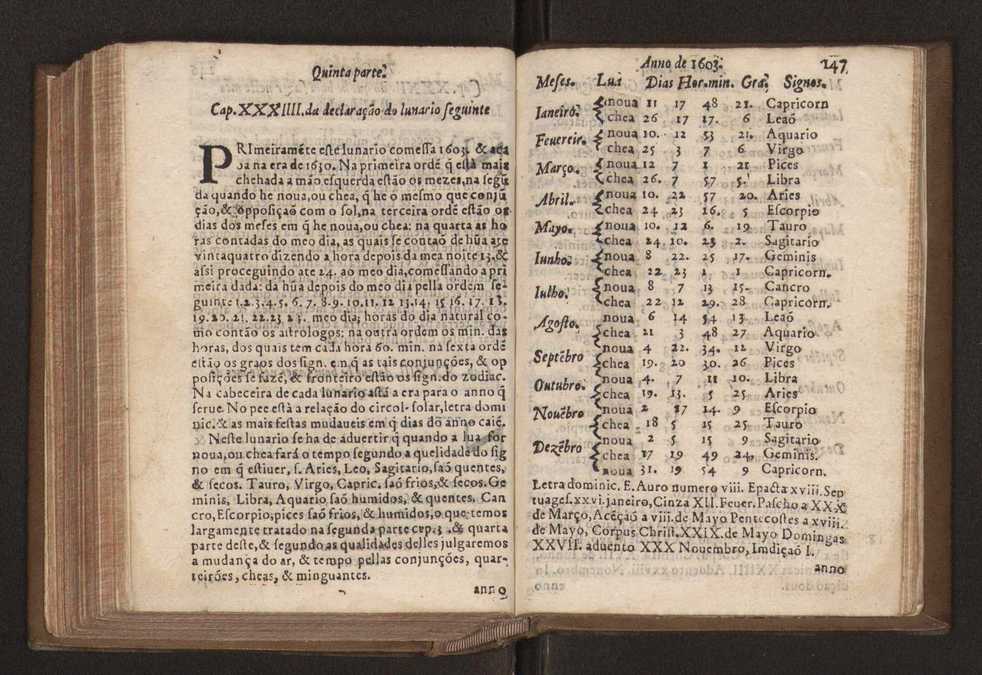 Quinta parte.
Cap. XXXIIII. da declaração do lunario seguinte
PRImeiramẽte este lunario comessa 1603. & aca
ba na era de 1630. Na primeira ordẽ q̃ está mais
chehada a mão esquerda estão os mezes, na segũ
da quando he noua, ou chea, q̃ he o mesmo que conju
ção, & opposição com o sol, na terceira ordẽ estão os
dias dos meses em q̃ he noua, ou chea: na quarta as ho
ras contadas do meo dia, as quais se contaõ de hũa atè
vintaquatro dizendo a hora depois da mea noite 13. &
assi proceguindo ate 24. ao meo dia, comessando a pri
meira dada: da hũa depois do meo dia pella ordem se-
guinte 1. 2. 3. 4. 5. 6. 7. 8. 9. 10. 11. 12 13. 14. 15 16. 17. 18.
19. 20. 21. 22. 23 23. meo dia; horas do dia natural co-
mo contão os astrologos: na outra ordem os min. das
horas, dos quais tem cada hora 60. min. na sexta ordẽ
estão os graos dos sign. em q̃ as tais conjunções, & op
posições se fazẽ, & fronteiro estão os sign. do zodiac.
Na cabeceira de cada lunario está a era para o anno q̃
serue. No pee està a relação do circol-solar, letra domi
nic. & as mais festas mudaueis em q̃ dias do anno caiẽ.
Neste lunario se ha de advertir q̃ quando a lua for
noua, ou chea fará o tempo segundo a quelidade do sig
no em q̃ estiuer, s. Aries, Leo, Sagitario, saõ quentes,
& secos. Tauro, Virgo, Capric. saõ frios, & secos. Ge
minis, Libra, Aquario saõ humidos, & quentes. Can
cro, Escorpio, pices saõ frios, & humidos, o que temos
largamente tratado na segunda parte cap. 3. & quarta
parte deste, & segundo as qualidades delles julgaremos
a mudança do ar, & tempo pellas conjunções, quar-
teirões, cheas, & minguantes.
anno
Anno de 1603. 147
Meses. Lua Dias Hor. min. Gra. Signos.
Ianeiro. noua 11 17 48 21. Capricorn
chea 26 17 17. 6 Leaõ
Feuereir. noua 10. 12 53 21. Aquario
chea 25 3 7 6 Virgo
Março. noua 12 7 1 21 Pices
chea 26. 7 57 5. Libra
Abril. noua 10. 22 57 20. Aries
chea 24 23 16. 5 Escorpio
Mayo. noua 10. 12 6. 19 Tauro
chea 24 10. 23 2. Sagitario
Iunho. noua 8 22. 25 17. Geminis
chea 22 23 1 1 Capricorn.
Iulho. noua 8 7 13 15. Cancro
chea 22 12 29. 28 Capricorn.
Agosto. noua 6 14 54 13 Leaõ
chea 21 3 48 27 Aquario
Septẽbro noua 4 22. 34. 12 Virgo
chea 19. 20 30. 26 Pices
Outubro. noua 4. 7 11 10. Libra
chea 19. 13. 5 25 Aries
Nouẽbro noua 2 17 14. 9 Escorpio
chea 18 5 15 25 Tauro
Dezẽbro noua 2 5 15 9 Sagitario
chea 17 19 49 24, Geminis.
noua 31. 19 54 9 Capricorn.
Letra dominic. E. Auro numero viii. Epacta xviii. Sep
tuages. xxvi. janeiro, Cinza XII. Feuer. Pascho a XXX
de Março, Acẽçaõ a viii. de Mayo Pentecostes a xviii.
de Mayo, Corpus Christ. XXIX. de Mayo Domingas
XXVII. aduento XXX Nouembro, Imdiçaõ I.
anno